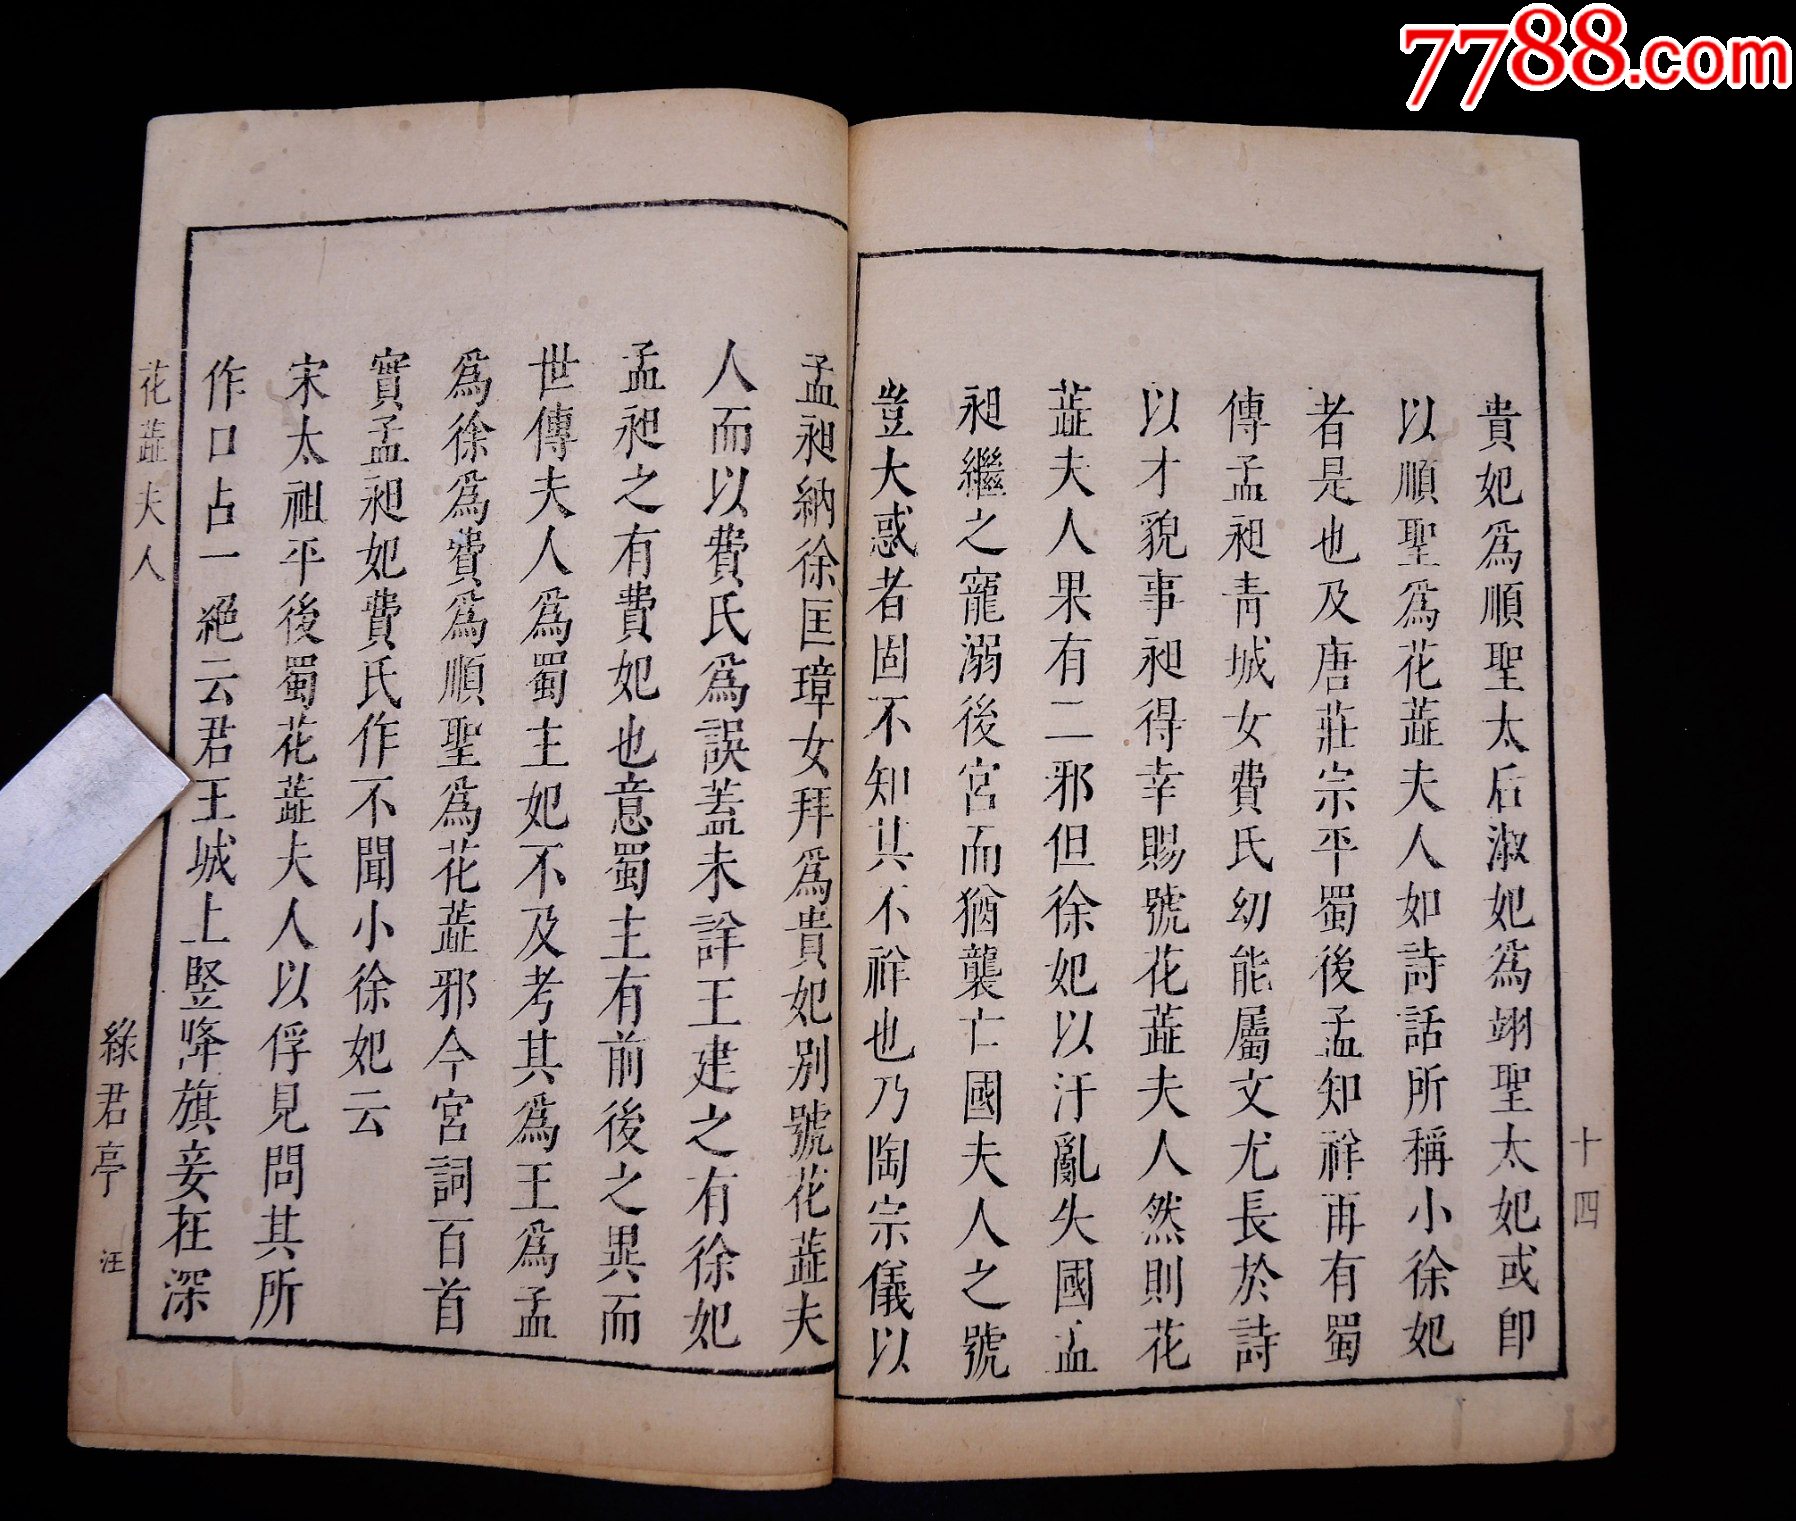 7788.com
貴妃爲順聖太后淑妃爲翊聖太妃或卽
以順聖爲花蕋夫人如詩話所稱小徐妃
者是也及唐莊宗平蜀後孟知祥再有蜀
傳孟昶青城女費氏幼能屬文尤長於詩
以才貌事昶得幸賜號花蕋夫人然則花
蕋夫人果有二邪但徐妃以汙亂失國孟
昶繼之寵溺後宮而猶襲亡國夫人之號
豈大惑者固不知其不祥也乃陶宗儀以
十四
孟昶納徐匡璋女拜爲貴妃别號花蕋夫
人而以費氏爲誤蓋未詳王建之有徐妃
孟昶之有費妃也意蜀主有前後之異而
世傳夫人爲蜀主妃不及考其爲王爲孟
爲徐爲費爲順聖爲花蕋邪今宮詞百首
實孟昶妃費氏作不聞小徐妃云
宋太祖平後蜀花蕋夫人以俘見問其所
作口占一絕云君王城上竪降旗妾在深
花蕋夫人
綠君亭
汪